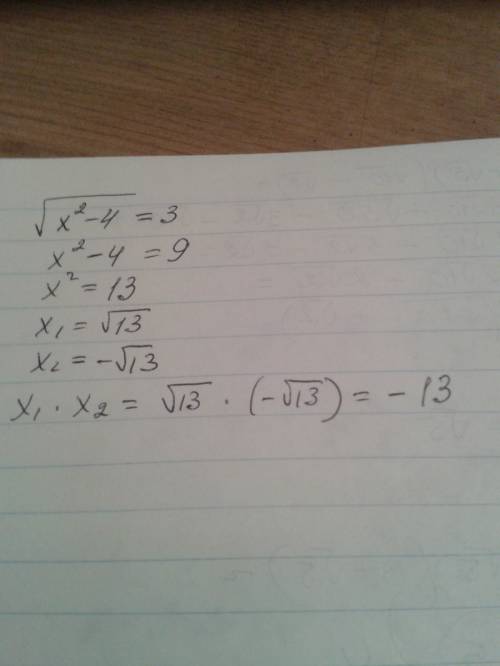 √(x²-4) = 3
x²-4 = 9
x² = 13
x₁ = √13
x₂ = -√13
x₁ · x₂ = √13 · (-√13) = -13